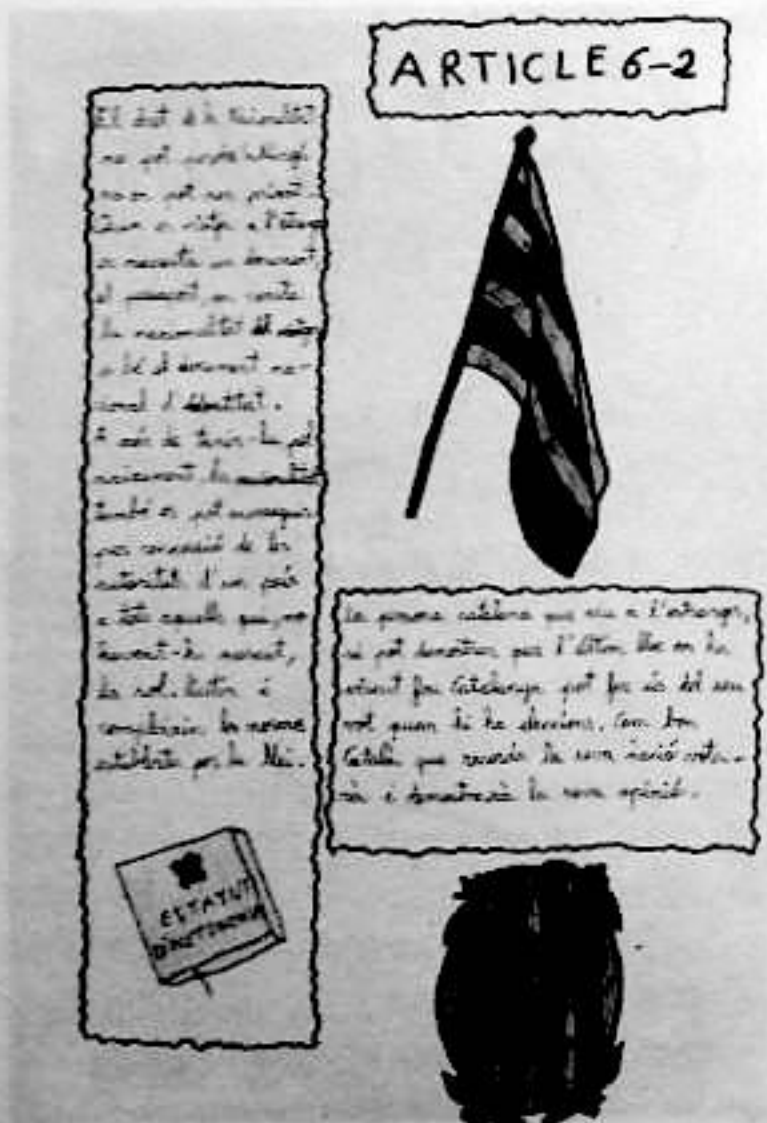 ARTICLE 6-2
El dret de la Nacionalitat
no pot
no es pot ser privat.
Quan es viatja a l'estran
es necessita un document
el passaport, on consta
la nacionalitat del
o bé el document na-
cional d'identitat.
A més de tenir-la pel
naixement, la nacionalitat
també es pot aconseguir
per concessió de les
autoritats d'un país
a tots aquells que, no
havent-hi nascut,
la sol·licitin i
compleixin les normes
establertes per la llei.
ESTATUT
D'AUTONOMIA
La persona catalana que viu a l'estranger,
si pot demostrar que l'últim lloc on ha
viscut fou Catalunya pot fer ús del seu
vot quan hi ha eleccions. Com bon
Català que recorda la seva nació vota-
rà i demostrarà la seva opinió.